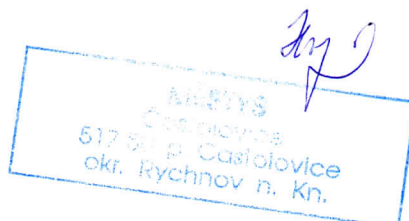 MĚSTYS
Častolovice
517 50 p. Častolovice
okr. Rychnov n. Kn.